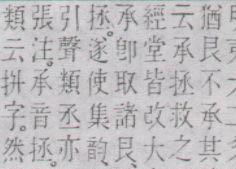 猶艮不承其
云承拯救之
經堂皆改大
承卽取諸艮、
拯。遂使集韵
引聲類丞。亦
張注。承音拯。
類云抍字。然